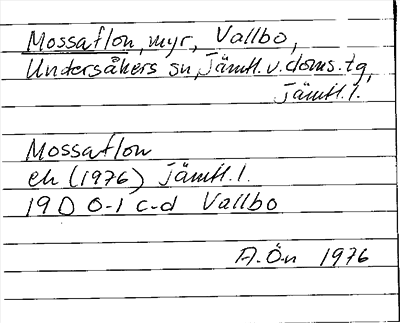 Mossaflon, myr, Vallbo,
Undersåkers sn, Jämtl.v.doms.tg,
Jämtl.l.
Mossaflon
ek (1976) Jämtl.l.
19D 0-1 c-d Vallbo
A.Ön 1976